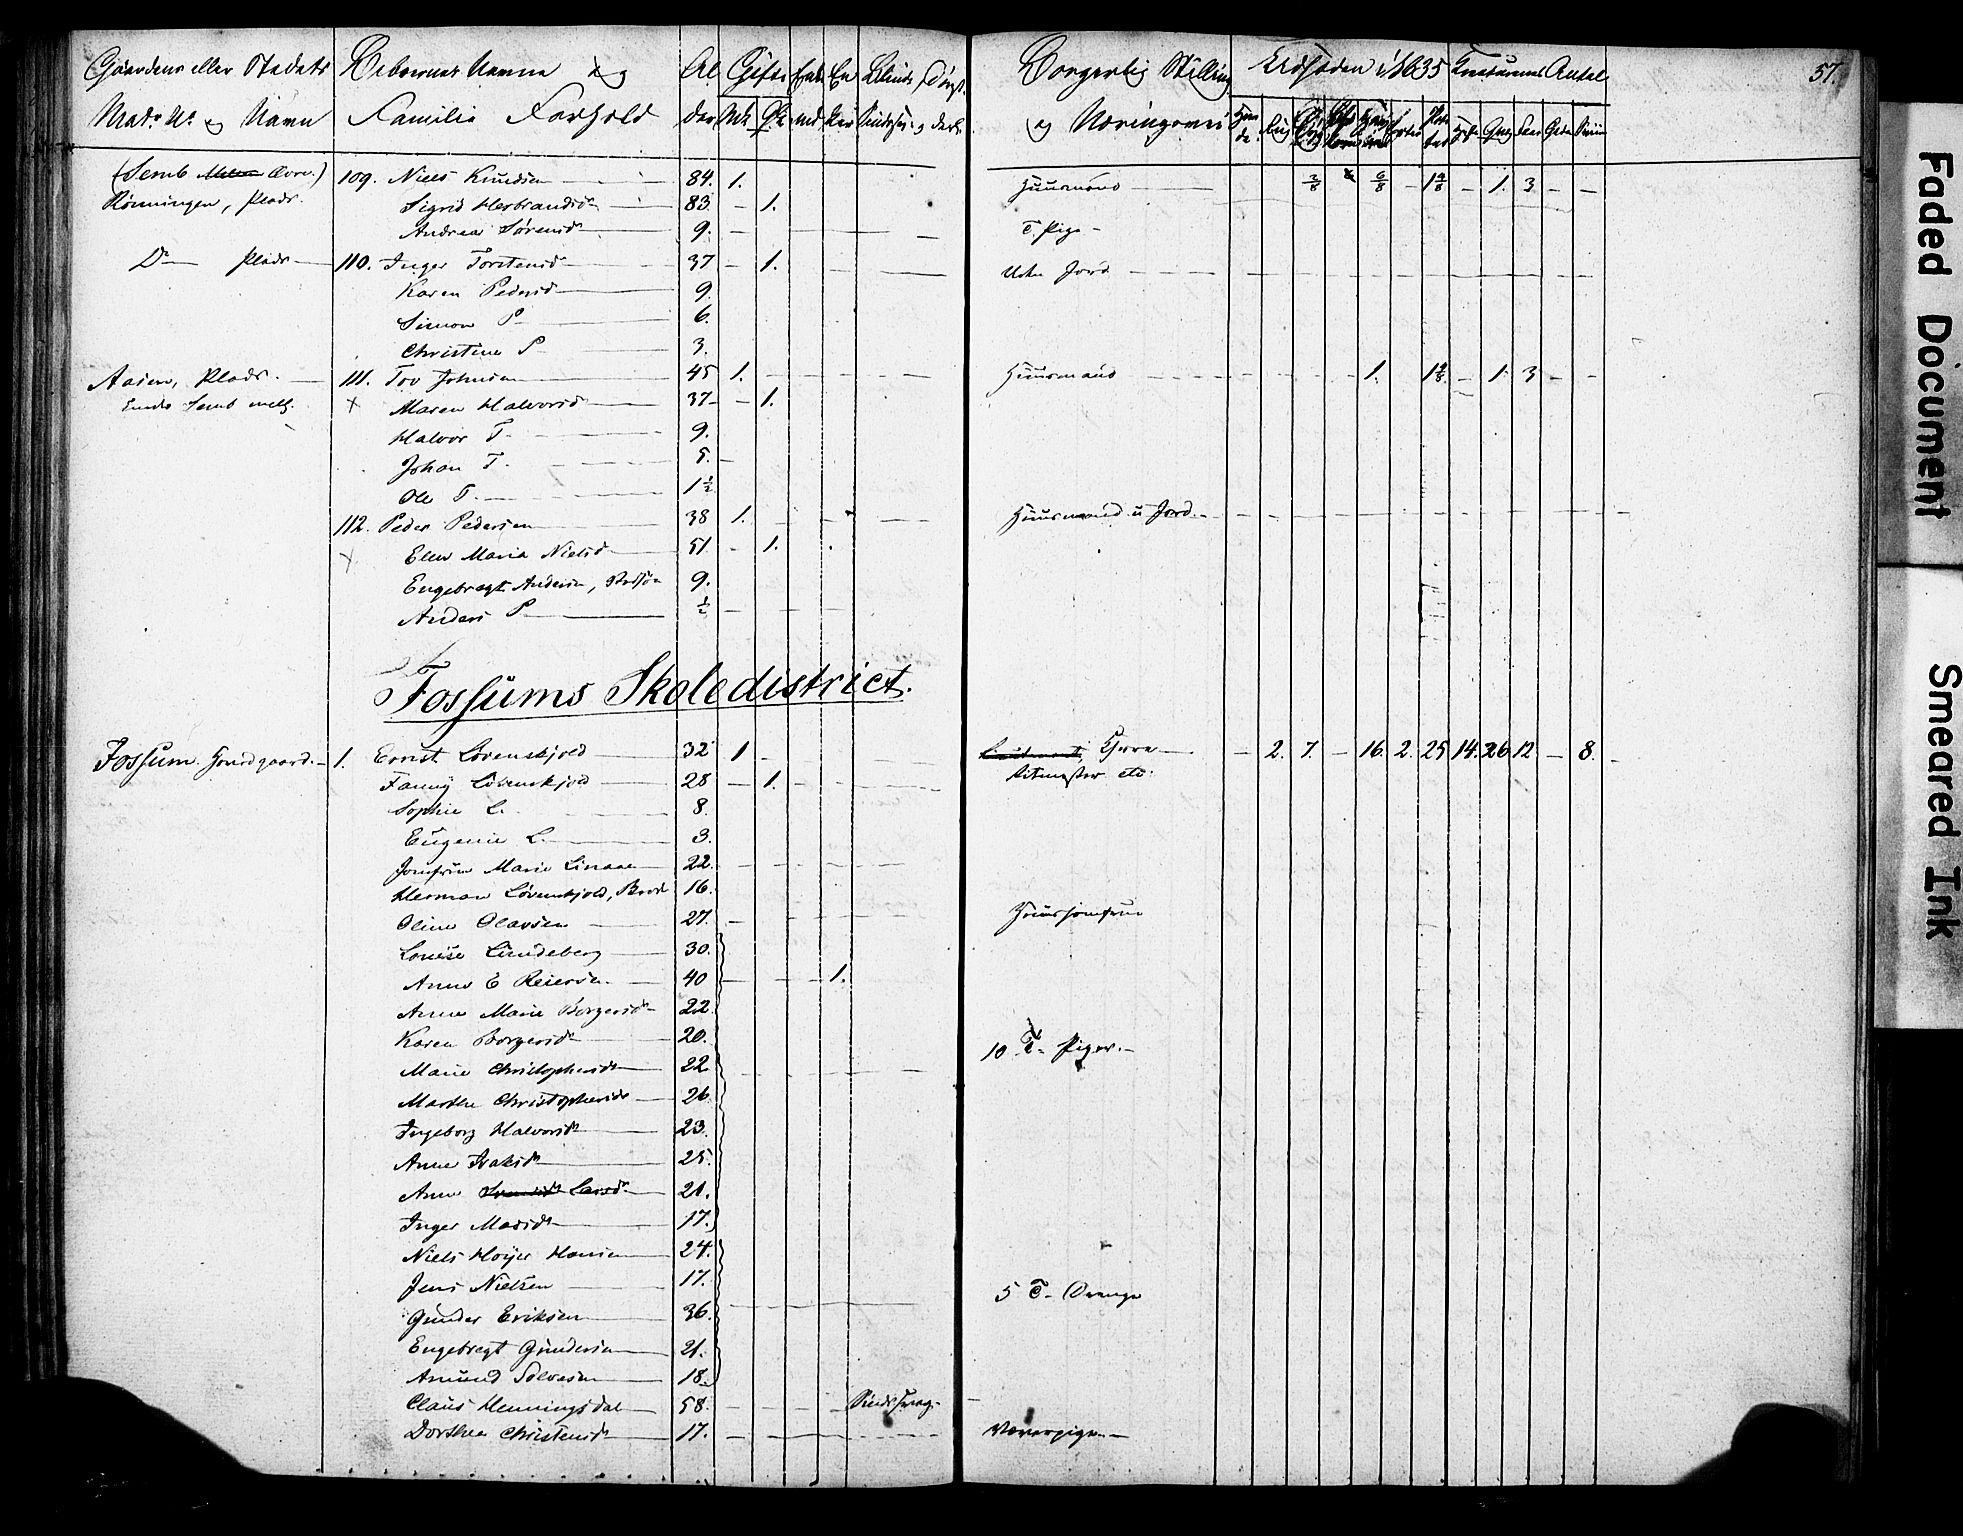 Gaardens eller Stedets Beboernes Navne og Al Gifte Enke En Blinde, Døvst. Borgerlig Stilling Udsæden i 1835 Kreaturens Antal 57.
Matr. No og Navn Familie Forhold der Mk Qk md ker Sindssv. og Næringsvei
(Semb Øvre.) 109. Niels Knudsen 84. 1. Huusmand 3/8 6/8 1 - 1. 3 - -
Rønningen, Plads. Sigrid Herbrandsd. 83. - 1.
Andrea Sørensd. 9. T. Pige -
Do Plads 110. Inger Torstensd. 37 - 1. Uden Jord
Karen Pedersd. 9.
Simon P 6.
Christine P 3.
Aasen, Plads. 111. Tov Johnsen 45 1. Huusmand 1. 1 - 1. 3 - -
Under Semb mell. x Maren Halvorsd. 37 - 1.
Halvor T. 9.
Johan T. 5.
Ole T. 1½
112. Peder Pedersen 38 1. Huusmand u. Jord.
x Ellen Maria Nielsd. 51 - 1.
Engebregt Andersen, Stedsøn 9.
Anders P ½
Fossums Skoledistrict.
Fossum Hovedgaard. 1. Ernst Løvenskjold 32 1 - - 2. 7. - 16. 2. 25 14. 26 12 - 8.
Fanny Løvenskjold 28 - 1. Ritmester etc.
Sophie L. 8.
Eugenie L. 3.
Jomfrue Marie Linaae 22.
Herman Løvenskjold, Brod 16.
Oline Olavsen 27. Huusjomfrue
Lovise Lundeberg 30.
Anne E Reiersen 40 1.
Anne Marie Borgersd. 22.
Karen Borgersd. 20. 10 T. Piger.
Marie Christophersd. 22
Marthe Christophersd. 26
Ingeborg Halvorsd. 23.
Anne Isaksd. 25.
Anne Larsd. 21.
Inger Madsd. 17.
Niels Høyer Hansen 24.
Jens Nielsen 17. 5 T. Drenge
Gunder Eriksen 36.
Engebregt Gundersen 21.
Amund Solvesen 18.
Claus Henningsdal 58. Sindssvag.
Dorthea Christensd. 17. Væverpige.
Faded Document
Smeared Ink